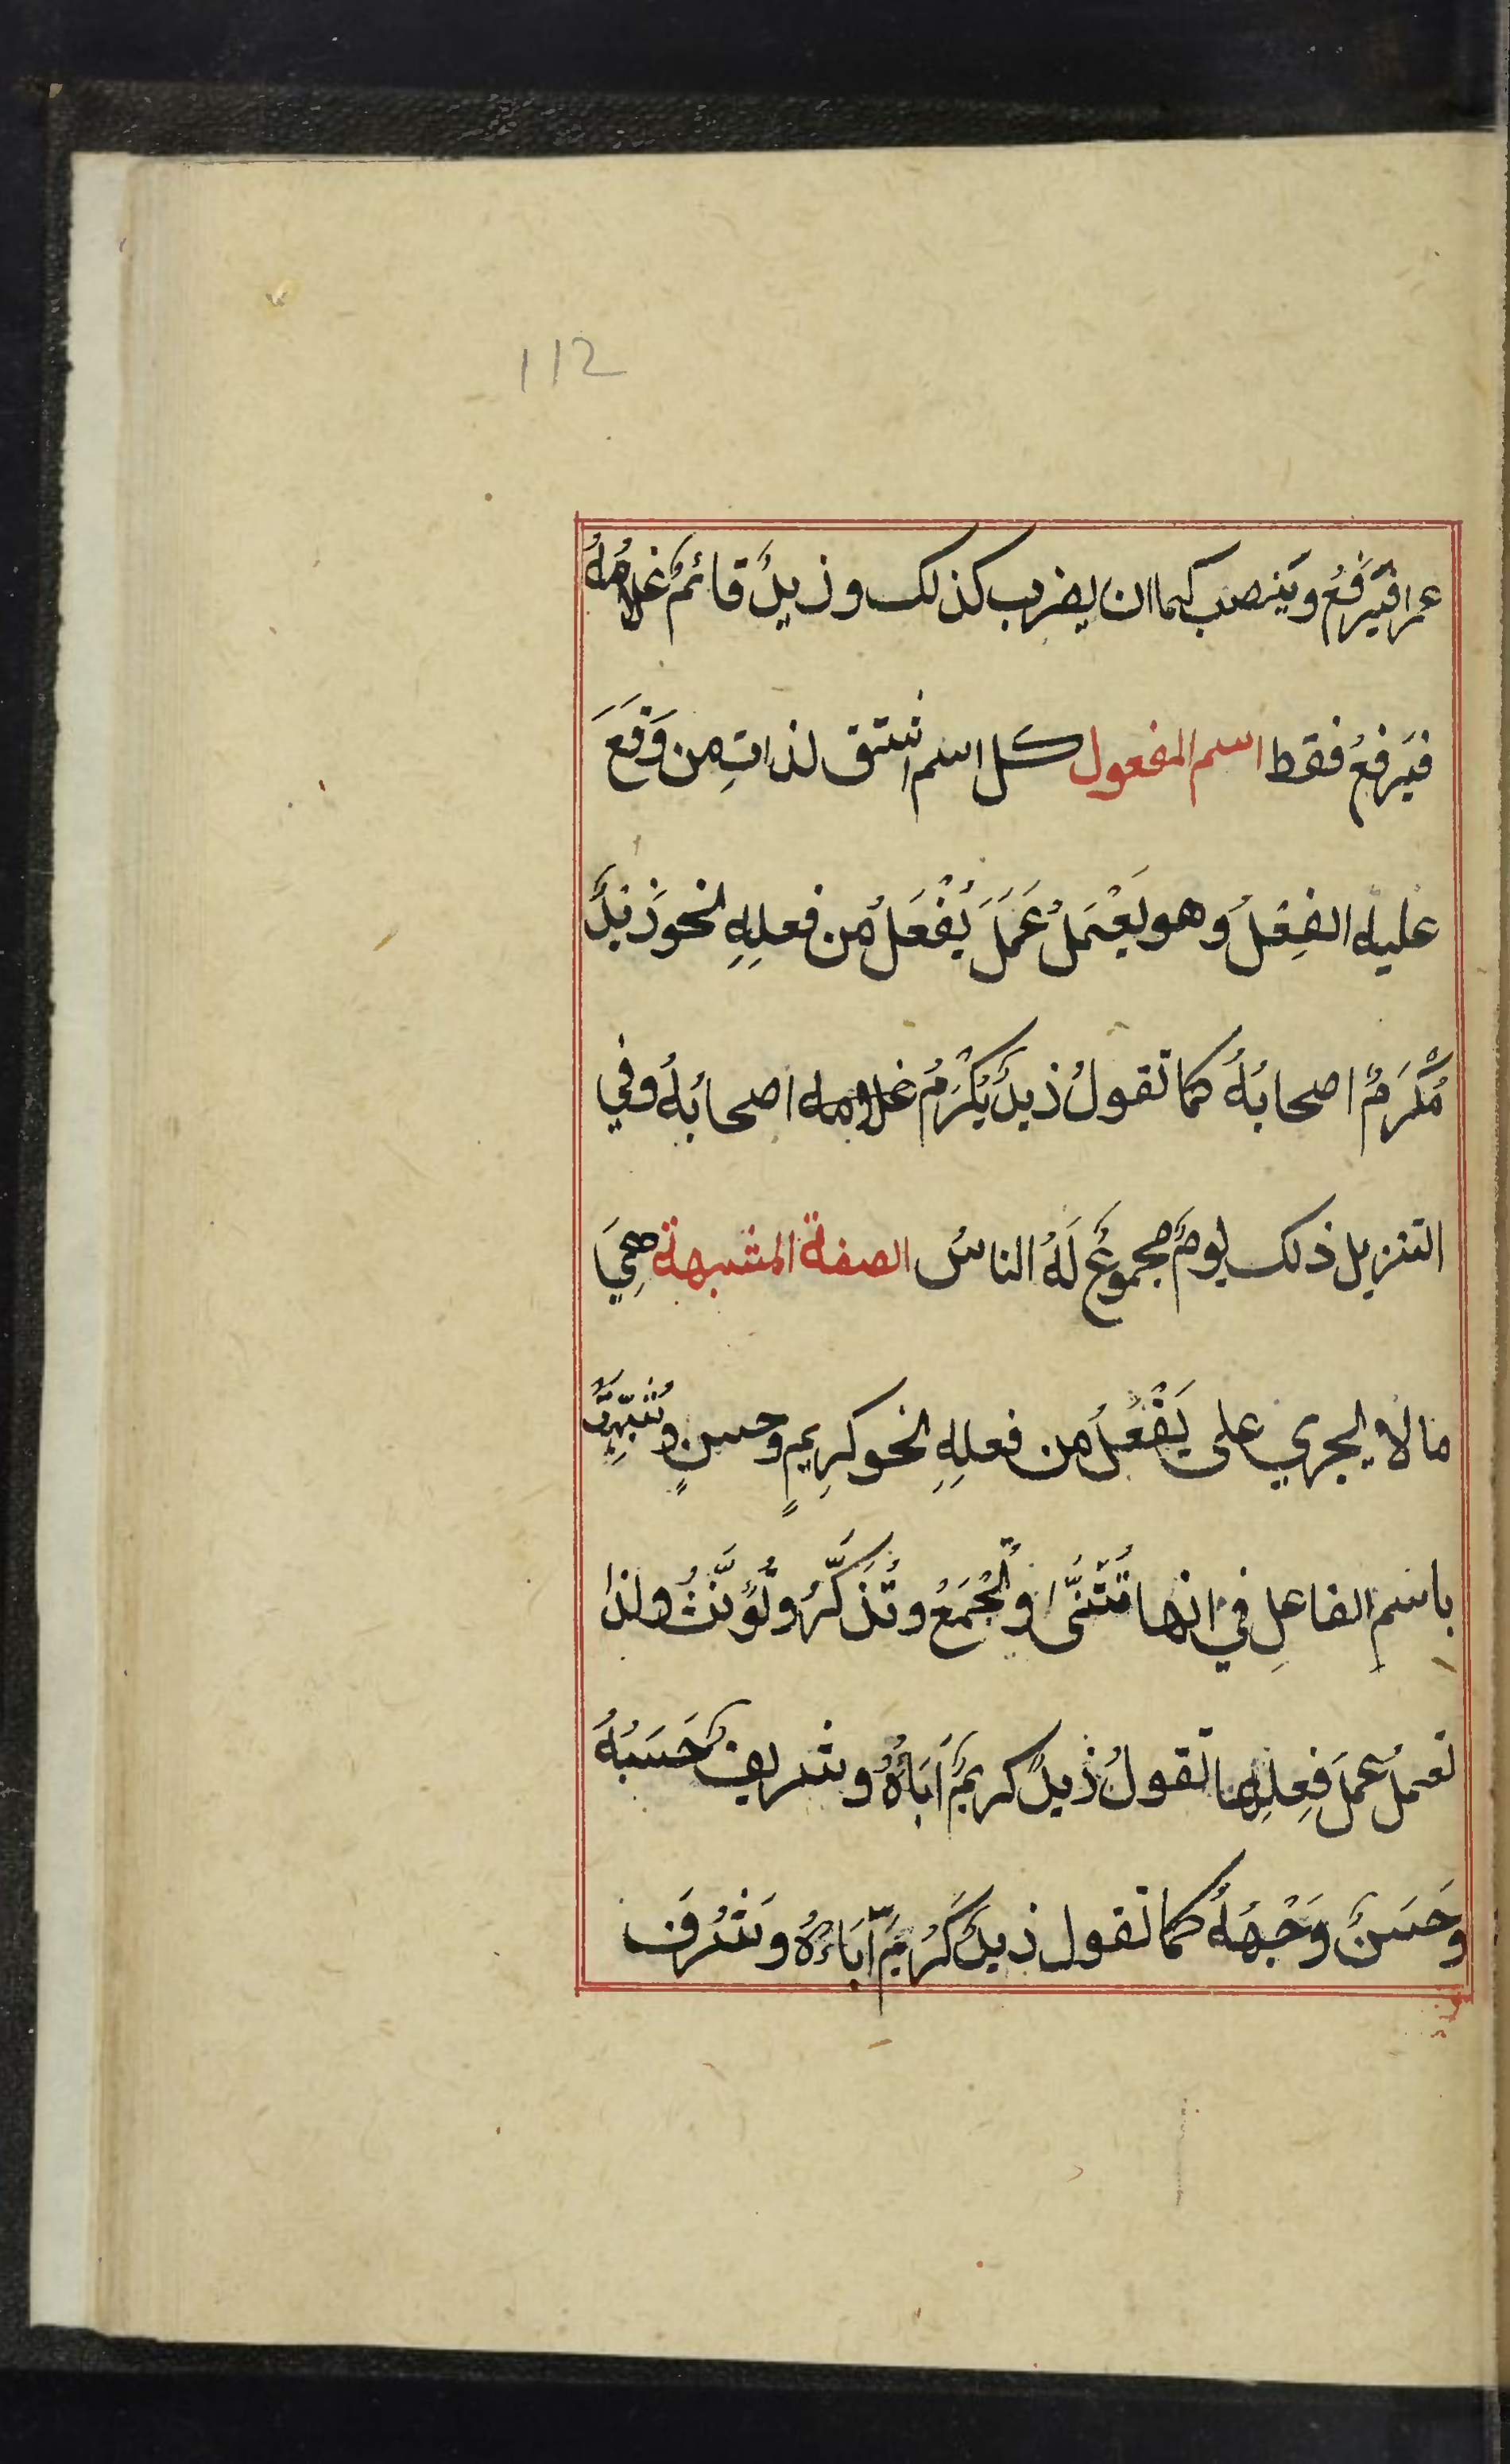 112
عمرا فَيَرفَعُ ويَنصب كما ان يضرب كذلك وزيدٌ قائمٌ غلامُهُ
فيَرفعُ فقط اسم المفعول كل اسم اشتق لذاتِ من وَقَعَ
عليه الفِعْلُ وهو يَعْمَلُ عَمَلَ يُفْعَلُ من فعلِهِ نحو زَيدٌ
مُكْرَمٌ اصحابُهُ كما تقولُ زيدٌ يُكْرَمُ غلامه اصحابُهُ وفي
التنزيل ذلك يومٌ مجموعٌ لَهُ الناسُ الصفة المشبهة هِيَ
مالا يجري على يَفْعُلُ من فعلِهِ نحو كرِيمٍ وحسنٍ وتُشَبَّهُ
باسمِ الفاعلِ في انها تُثَنَّى وتُجْمَعُ وتُذَكَّرُ وتُؤَنَّثُ ولذا
تعملُ عملَ فِعلِها تقولُ زيدٌ كريمٌ آبَاؤُهُ وشريفٌ حَسَبُهُ
وَحَسَنٌ وَجْهُهُ كما تقول زيدٌ كَرُمَ آبَاؤُهُ وشَرُفَ